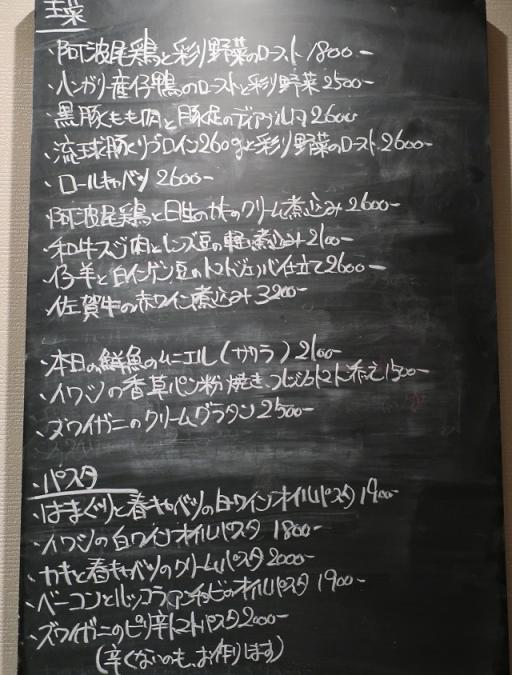 主菜
・阿波尾鶏と彩り野菜のロースト 1800-
・ハンガリー産仔鴨のローストと彩り野菜 2500-
・黒豚もも肉と豚足のディアブルマ 2600
・流球豚リブロイン260gと彩り野菜のロースト 2600-
・ロールキャベツ 2600-
阿波尾鶏と日生のカキのクリーム煮込み 2600-
・和牛スジ肉とレンズ豆の軽い煮込み 2100-
・仔羊と白インゲン豆のトマト 仕立て 2600-
・佐賀牛の赤ワイン煮込み 3200-
・本日の鮮魚のムニエル(サワラ) 2100-
・イワシの香草パン粉焼き、フレッシュトマト添え 1500-
・ズワイガニのクリームグラタン 2500-
・パスタ
・はまぐりと春キャベツの白ワインオイルパスタ 1900-
・イワシの白ワインオイルパスタ 1800-
・カキと春キャベツのクリームパスタ 2000-
・ベーコンとルッコラ、アンチョビのオイルパスタ 1900-
・ズワイガニのピリ辛トマトパスタ 2000-
(辛くないのも、お作りします)